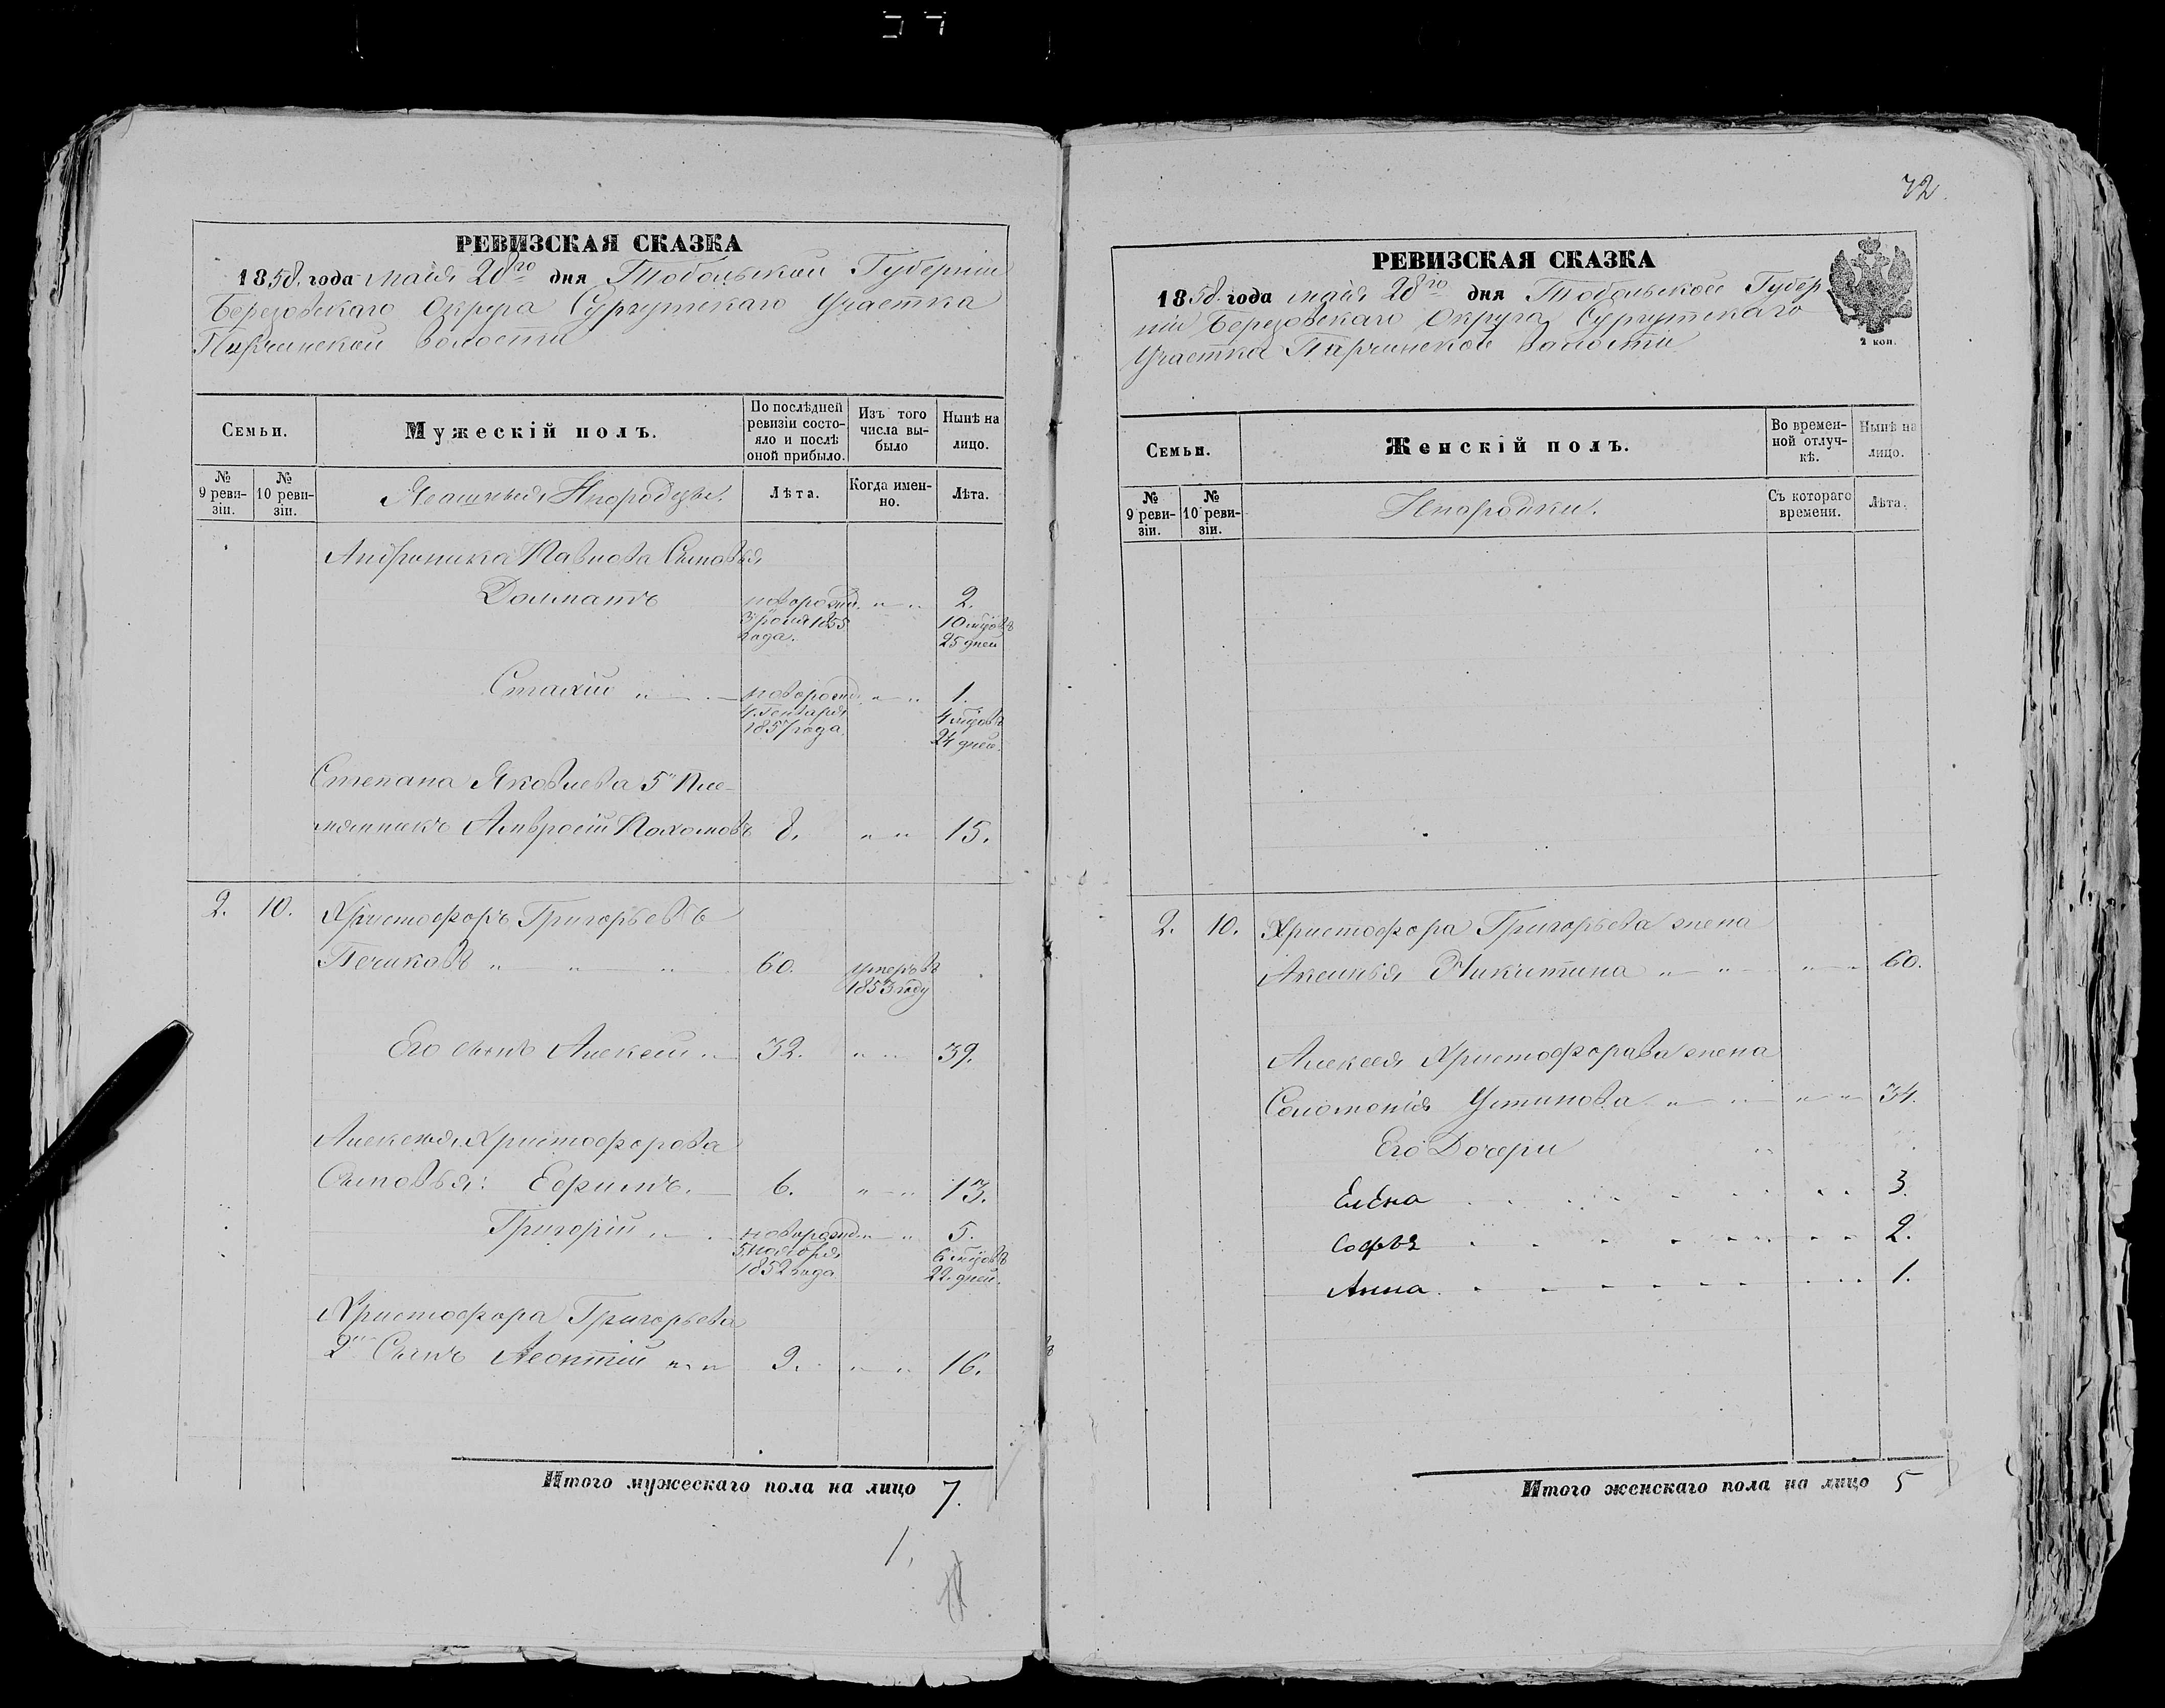 72
РЕВИЗСКАЯ СКАЗКА
1858. года майя 28го дня Тобольской Губерніи
Березовскаго Округа Сургутскаго Участка
Пирчинской волости
Семьи.
Мужескій полъ.
По послѣдней ревизіи состояло и послѣ оной прибыло.
Изъ того числа выбыло
Нынѣ на лицо.
№ 9 ревизіи.
№ 10 ревизіи.
Ясашныя Инородцы.
Лѣта.
Когда именно.
Лѣта.
Андроника Павлова Сыновья
Долматъ новорожд. 2.
3 Іюня 1855 10 мѣсяцовъ
года. 25 дней
Стахій новорожд. 1.
4. Генваря 4 мѣсяцовъ
1857 года. 24 дней.
Степана Яковлева 5й Пле-
мянникъ Амвросій Пахомовъ 8. 15.
2. 10. Христофоръ Григорьевъ
Печиковъ 60. умеръ въ
1853 году
Его сынъ Алексей 32. 39.
Алексея Христофорова
Сыновья: Ефимъ. 6. 13.
Григорій новорожд. 5.
5. ноября 6 мѣсяцовъ
1852 года 22. дней.
Христофора Григорьева
2й Сынъ Леонтій 9. 16.
Итого мужескаго пола на лицо 7.
1.
РЕВИЗСКАЯ СКАЗКА
1858 года майя 28го дня Тобольской Губер
ніи Березовскаго Округа Сургутскаго
Участка Пирчинской волости
2 коп.
Семьи.
Женскій полъ.
Во временной отлучкѣ.
Нынѣ на лицо.
№ 9 ревизіи.
№ 10 ревизіи.
Инородки.
Съ котораго времени.
Лѣта.
2. 10. Христофора Григорьева жена
Аксинья Никитина 60.
Алексея Христофорова жена
Соломонія Устинова 34.
Его Дочери
Елена 3.
Софья 2.
Анна 1.
Итого женскаго пола на лицо 5